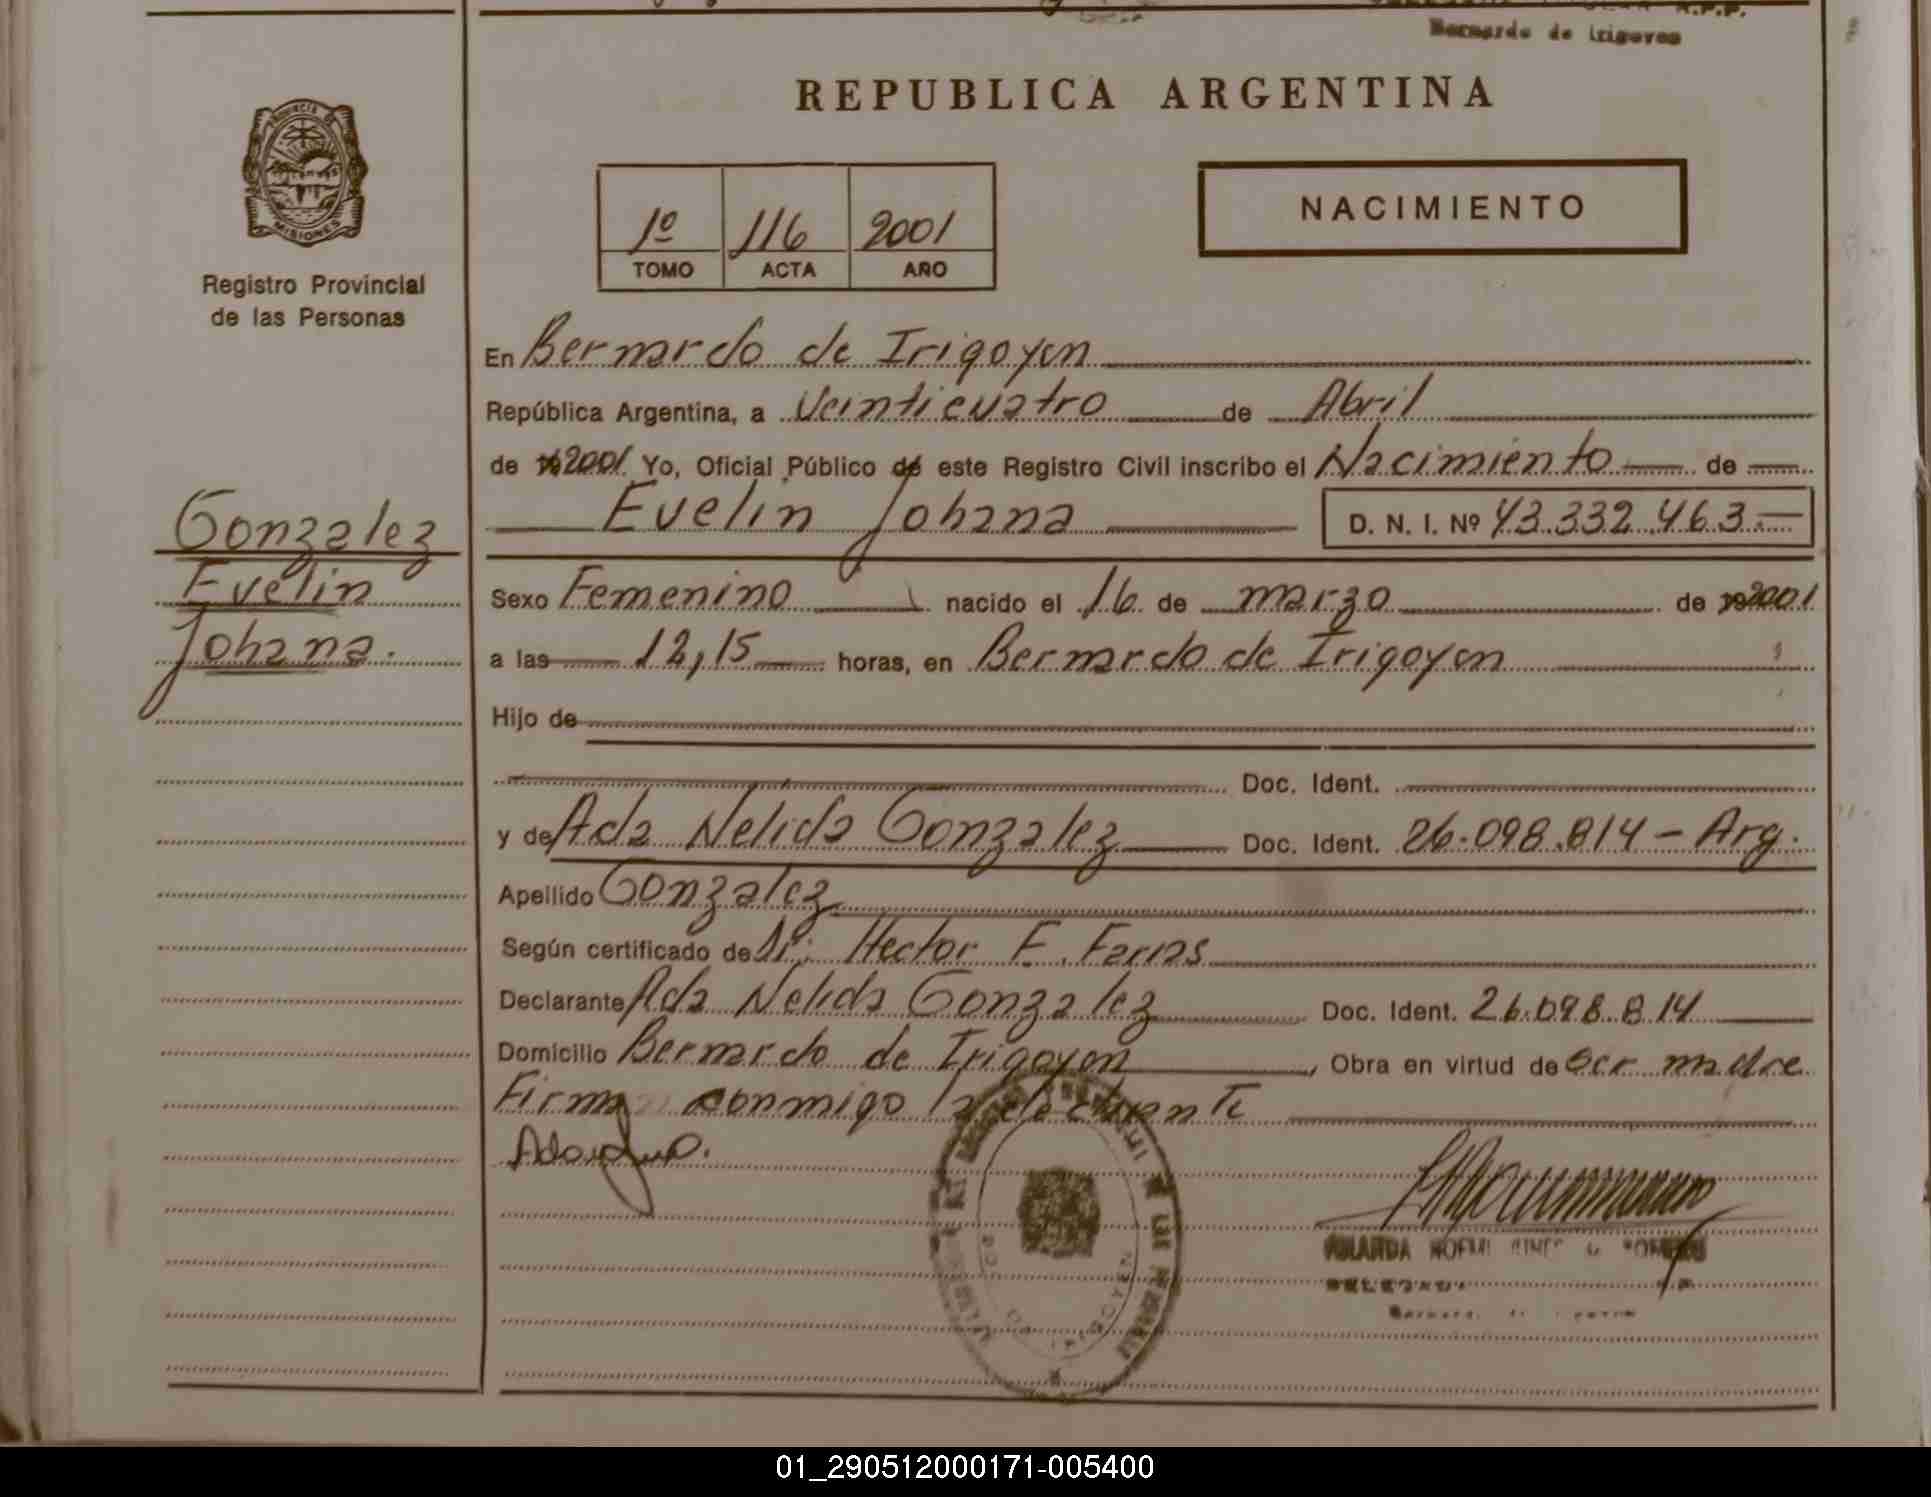 Bernardo de Irigoyen
REPUBLICA ARGENTINA
PROVINCIA DE
MISIONES
1º 116 2001
TOMO ACTA AÑO
NACIMIENTO
Registro Provincial
de las Personas
En Bernardo de Irigoyen
República Argentina, a Veinticuatro de Abril
de 2001 Yo, Oficial Público de este Registro Civil inscribo el Nacimiento de
Evelin Johana D. N. I. Nº 43.332.463.-
Gonzalez
Evelin
Johana.
Sexo Femenino nacido el 16 de marzo de 2001
a las 12,15 horas, en Bernardo de Irigoyen
Hijo de
Doc. Ident.
y de Ada Nelida Gonzalez Doc. Ident. 26.098.814 - Arg.
Apellido Gonzalez
Según certificado de Dr. Hector F. Farias
Declarante Ada Nelida Gonzalez Doc. Ident. 26.098.814
Domicilio Bernardo de Irigoyen, Obra en virtud de ser madre
Firma conmigo la declarante
NOEMI
01_290512000171-005400